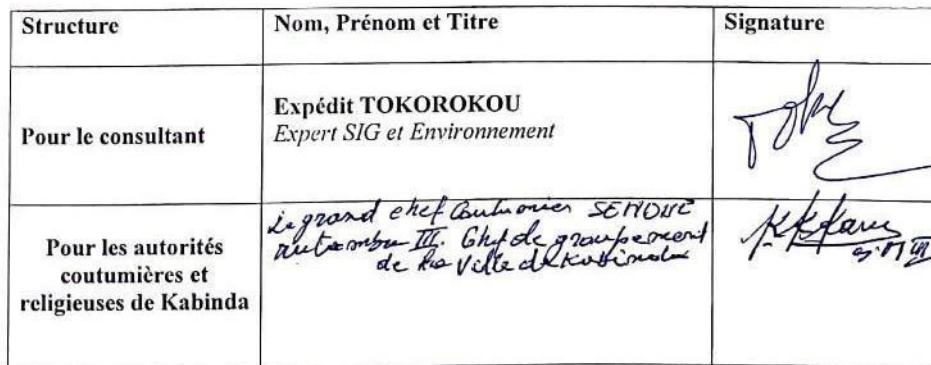 Structure
Nom, Prénom et Titre
Signature
Pour le consultant
Expédit TOKOROKOU
Expert SIG et Environnement
Pour les autorités
coutumières et
religieuses de Kabinda
Le grand chef Coutumier
III. Chef de groupement
de la Ville de Kabinda